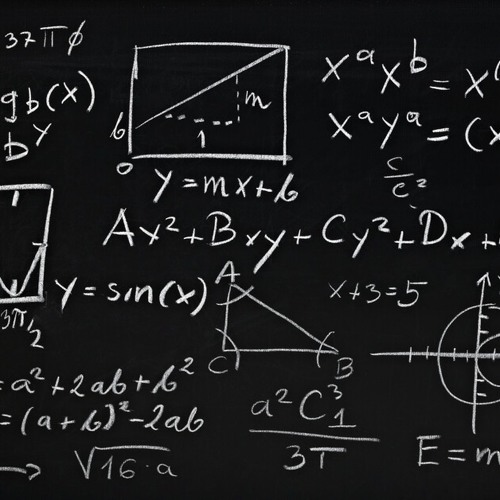 37πϕ
gb(x)
b^y
b
m
1
0
y=mx+b
x^a x^b = x
x^a y^a = (x
c/c²
Ax²+Bxy+Cy²+Dx+
3π/2
y=sin(x)
A
C
B
x+3=5
=a²+2ab+b²
=(a+b)²-2ab
→ √16·a
a²C³₁
3T
E=m